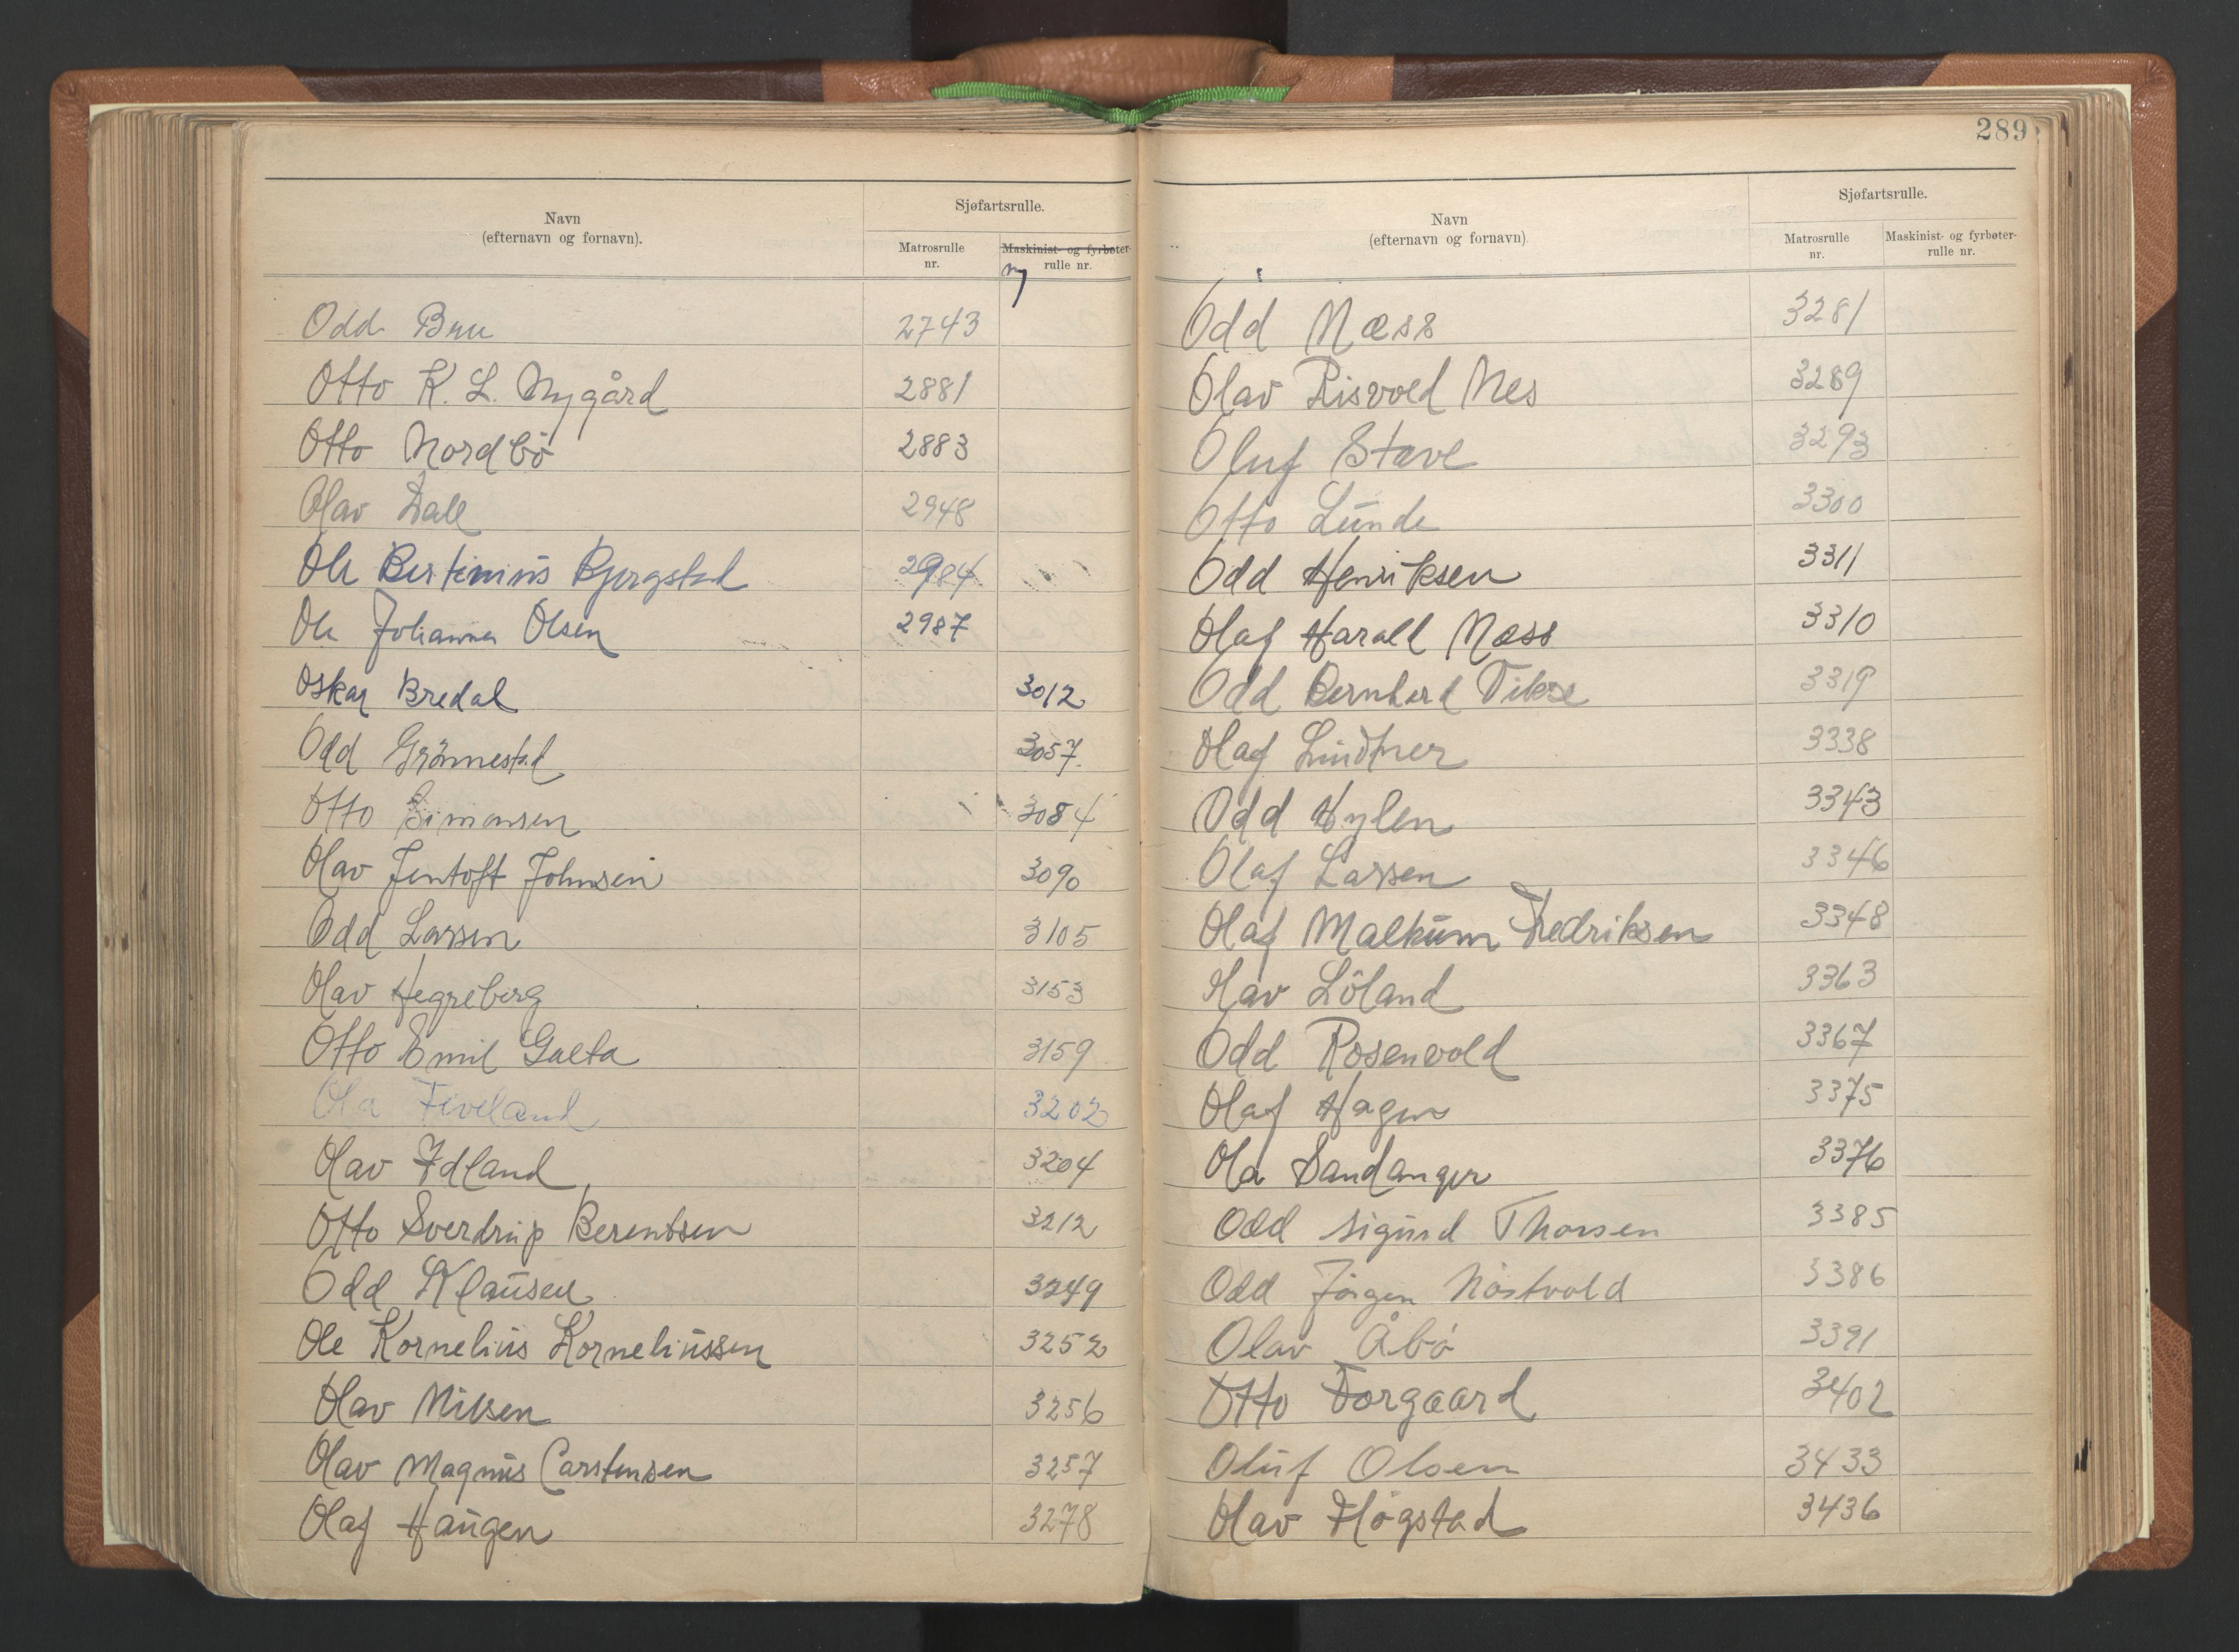 Navn
(efternavn og fornavn).
Sjøfartsrulle.
Matrosrulle nr.
Maskinist- og fyrbøter-rulle nr.
ny
Odd Bru 2743
Otto K. L. Nygård 2881
Otto Nordbö 2883
Olav Dall 2948
Ole Bertinius Bjergsted 2984
Ole Johannes Olsen 2987
Oskar Bredal 3012
Odd Grönnestad 3057
Otto Simonsen 3084
Olav Jentoft Johnsen 3090
Odd Larsen 3105
Olav Hegreberg 3153
Otto Emil Gaeta 3159
Ola Tveland 3202
Olav Idland 3204
Otto Sverdrup Berentsen 3212
Odd Klausen 3249
Ole Kornelius Korneliussen 3252
Olav Nilsen 3256
Olav Magnus Carstensen 3257
Olaf Haugen 3278
289
Navn
(efternavn og fornavn)
Sjøfartsrulle.
Matrosrulle nr.
Maskinist- og fyrbøter-rulle nr.
Odd Næss 3281
Olav Risvold Nes 3289
Oluf Stave 3293
Otto Lunde 3300
Odd Henriksen 3311
Olaf Harald Næss 3310
Odd Bernhard Vikse 3319
Olaf Lindtner 3338
Odd Hylen 3343
Olaf Larsen 3346
Olaf Malkum Fredriksen 3348
Olav Löland 3363
Odd Rosenvold 3367
Olaf Hagen 3375
Ola Sandanger 3376
Odd Sigurd Thorsen 3385
Odd Jörgen Nöstvold 3386
Olav Åbö 3391
Otto Torgaard 3402
Oluf Olsen 3433
Olav Högstad 3436